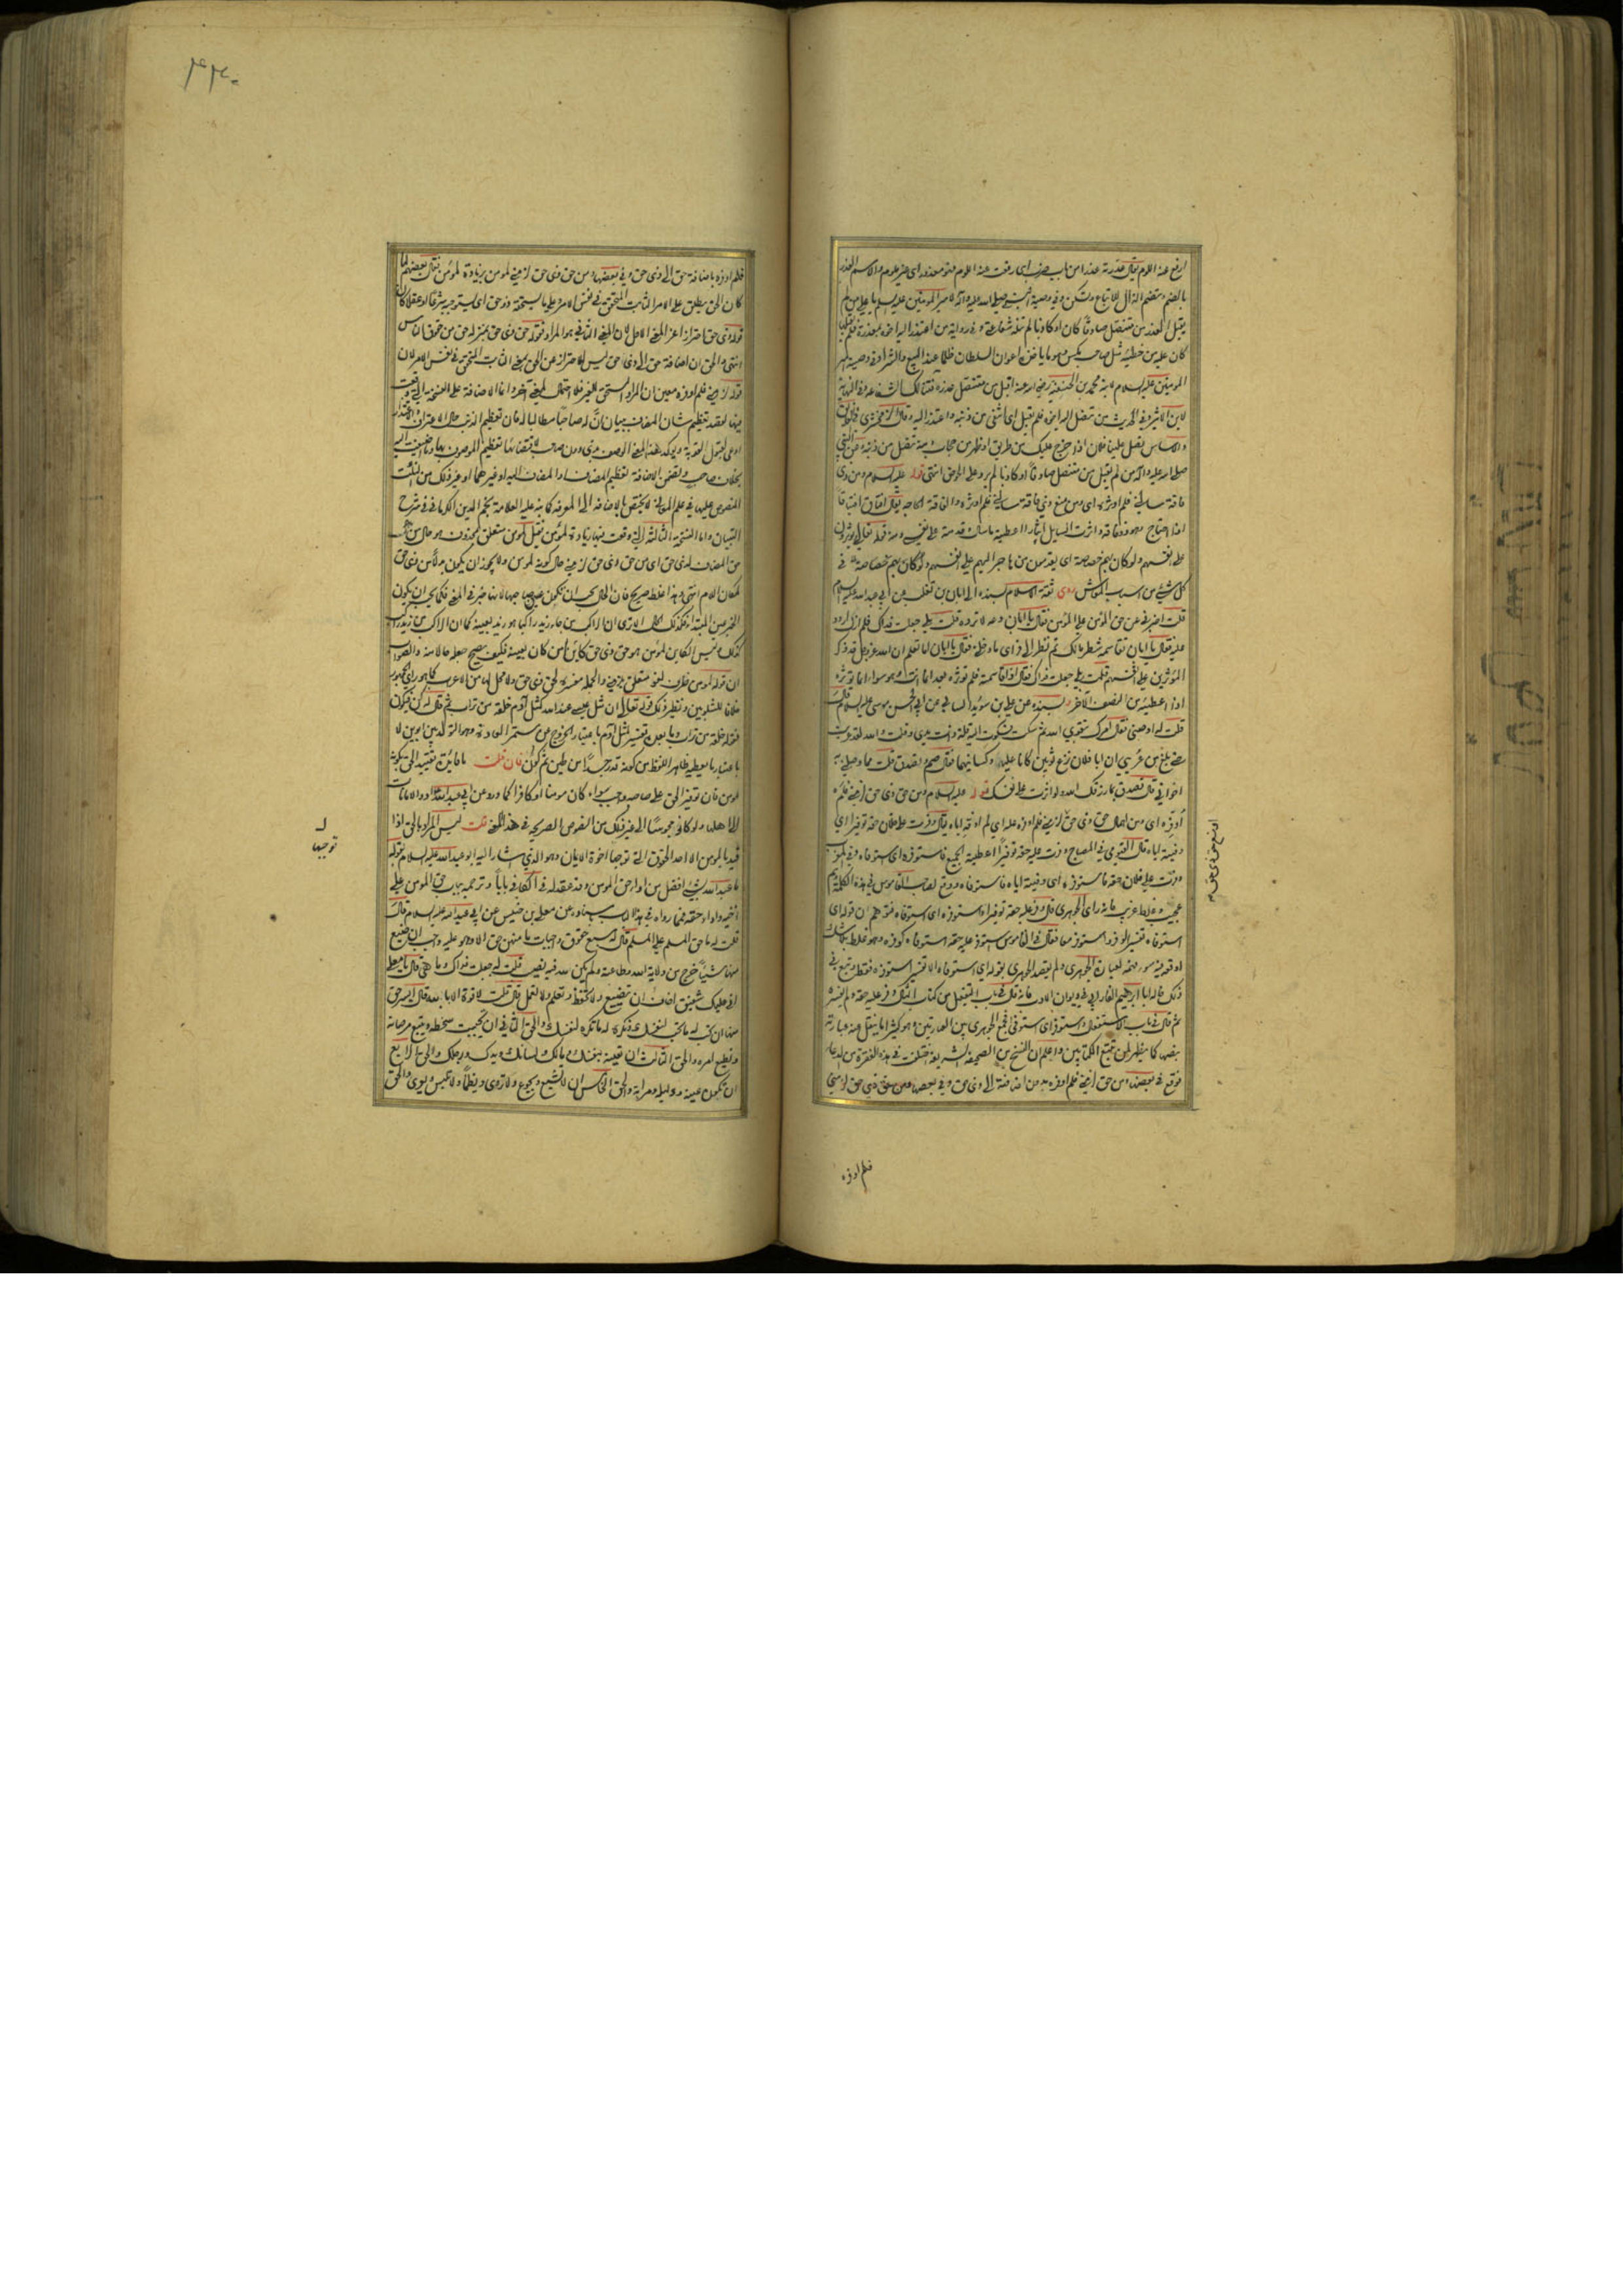 ارفع عنه اللوم يقال عذرته عذرا من باب ضرب اى رفعت عنه اللوم فهو معذور اى غير ملوم والاسم العذر
بالضم وتضم الذال للاتباع وتسكن وفى وصية النبى صلى الله عليه وآله لامير المؤمنين عليه السلام يا على من لم
يقبل العذر من متنصل صادقا كان او كاذبا لم تنله شفاعتى وفى رواية من اعتذر اليه اخوه بمعذرة فلم يقبلها
كان عليه من خطيئة مثل صاحب مكس وهو ما ياخذه اعوان السلطان ظلما عند البيع والشراء وفى وصية امير
المؤمنين عليه السلام لابنه محمد بن الحنفية رضى الله عنه اقبل من متنصل عذره فتنالك الشفاعة وفى النهاية
لابن الاثير فى الحديث من تنصل اليه اخوه فلم يقبل اى انتفى من ذنبه واعتذر اليه وقال الزمخشرى
صلى الله عليه وآله من لم يقبل من متنصل صادقا او كاذبا لم يرد على الحوض انتهى قوله عليه السلام ومن ذى
فاقة سالنى فلم اوثره اى ومن منع ذى فاقة سالنى فلم اوثره والفاقة الحاجة يقال افتاق افتياقا
اذا احتاج وهو ذو فاقة واثرت السايل ايثارا اعطيته ما سالك قدمته على نفسى ومنه قوله تعالى ويؤثرون
على انفسهم ولو كان بهم خصاصة اى يقدمون من هاجر اليهم على انفسهم ولو كان بهم خصاصة فى
كل شئ من اسباب المعاش روى ثقة الاسلام بسنده الى ابان بن تغلب عن ابى عبد الله عليه السلام
قلت اخبرنى عن حق المؤمن على المؤمن فقال يا ابان دعه لا ترده قلت بلى جعلت فداك فلم ازل اردد
عليه فقال يا ابان تقاسمه شطر مالك ثم نظر الى فراى ما دخلنى فقال يا ابان اما تعلم ان الله عز وجل قد ذكر
المؤثرين على انفسهم قلت بلى جعلت فداك فقال اذا قاسمته فلم تؤثره بعد انما انت وهو سواء انما تؤثره
اذا اعطيته من النصف الآخر وبسنده عن على بن سويد السائى عن ابى الحسن موسى عليه السلام قال
قلت له اوصنى فقال آمرك بتقوى الله ثم سكت فشكوت اليه قلة ذات يدى وقلت والله لقد عريت
حتى بلغ من عريى ان ابا فلان نزع ثوبين كانا عليه وكسانيهما فقال صم وتصدق قلت مما وصلنى به
اخوانى قال تصدق بما رزقك الله ولو اثرت على نفسك قوله عليه السلام ومن حق ذى حق لزمنى فلم
اوفره اى ومن اهمال حق ذى حق لزمنى فلم اوفره عليه اى لم اوفه اياه يقال وفرت على فلان حقه توفيرا اى
وفيته اياه قال الفيومى فى المصباح وفرت عليه حقه توفيرا اعطيته الجميع فاستوفره اى استوفاه وفى المغرب
وفرت على فلان حقه فاستوفره اى وفيته اياه فاستوفاه ووقع لصاحب القاموس فى هذه الكلمة وهم
عجيب وغلط غريب فانه راى الجوهرى قال وفر عليه حقه توفيرا واستوفره اى استوفاه فتوهم ان قوله اى
استوفاه تفسير لوفر واستوفر معا فقال فى القاموس استوفر عليه حقه استوفاه كوفره وهو غلط بلا شك
ذلك خاله ابا ابراهيم الفارابى فى ديوان الادب فانه قال فى باب التفعيل من كتاب المثال وفر عليه حقه ولم يفسره
ثم قال فى باب الاستفعال واستوفر اى استوفى فجمع الجوهرى بين العبارتين وهو كثيرا ما ينقل منه عبارته
بنصها كما يظهر لمن تتبع الكتابين واعلم ان النسخ من الصحيفة الشريفة اختلفت فى هذه الفقرة من الدعاء
فوقع فى بعضها ومن حق لزمنى فلم اوفره بدون اضافة الى ذى حق وفى بعضها ومن حق ذى حق لزمنى
فلم اوفره
فلم اوفره باضافة حق الى ذى حق وفى بعضها ومن حق ذى حق لزمنى لمؤمن بزيادة لمؤمن فقال بعضهم لما
كان الحق يطلق على الامر الثابت المتحقق فى نفس الامر وعلى ما يستحقه ذو حق اى يستوجبه شرعا او عقلا كان
قوله ذى حق احترازا عن المعنى الاول لان المعنى الثانى هو المراد فقوله حق ذى حق بمنزلة حق من حقوق الناس
انتهى والحق ان اضافة حق الى ذى حق ليس للاحتراز عن الحق بمعنى الثابت المتحقق فى نفس الامر لان
قوله لزمنى فلم اوفره معين ان المراد المستحق للغير فلا احتمال لمعنى آخر وانما الاضافة على النسخة التى وقعت
فيها لقصد تعظيم شان المضاف ببيان ان له صاحبا مطالبا له فان تعظيم الذنب حال الاعتراف والاعتذار
ادعى لقبول التوبة
المنصوص عليها فى علم المعانى لا يختص بالاضافة الى المعرفة كما نبه عليه العلامة نجم الدين الكرمانى فى شرح
التبيان واما النسخة الثالثة التى وقعت فيها زيادة لمؤمن فقيل لمؤمن متعلق بمحذوف هو حال من
حق المضاف لذى حق اى من حق ذى حق لزمنى حال كونه لمؤمن ولا يجوز ان يكون بدلا من ذى حق
لمكان اللام انتهى وهذا غلط صريح فان الحال يجب ان تكون عين صاحبها لانها خبر فى المعنى فكما يجب ان يكون
الخبر عين المبتدا فكذلك الحال الا ترى ان الراكب من جاء زيد راكبا هو زيد بعينه كما ان الراكب من زيد راكب
كذلك وليس الكاين لمؤمن هو حق ذى حق كاينا من كان بعينه فكيف يصح جعله حالا منه والصواب
ان قوله لمؤمن ظرف لغو متعلق بلزمنى والجملة مفسرة لحق ذى حق ولا محل لها من الاعراب كما هو راى الجمهور
خلافا للشلوبين ونظير ذلك قوله تعالى ان مثل عيسى عند الله كمثل آدم خلقه من تراب ثم قال له كن فيكون
فقوله خلقه من تراب وما بعده تفسير لمثل آدم باعتبار الخروج عن مستمر العادة وهو التولد بين ابوين لا
باعتبار ما يعطيه ظاهر اللفظ من كونه قدر جسدا من طين ثم كون فان قلت ما فائدة تقييد الحق بكونه
لمؤمن فان توفير الحق على صاحبه واجب سواء كان مومنا او كافرا كما ورد عن ابى عبد الله ادوا الامانات
الى اهلها ولو كانوا مجوسا الى غير ذلك من النصوص الصريحة فى هذا المعنى قلت ليس المراد بالحق اذا
قيد بالمؤمن الا احد الحقوق التى توجبها اخوة الايمان وهو الذى اشار اليه ابو عبد الله عليه السلام بقوله
ما عبد الله بشئ افضل من اداء حق المومن وقد عقد له فى الكافى بابا وترجمه بباب حق المومن على
اخيه واداء حقه فمما رواه فى هذا الباب باسناده عن معلى بن خنيس عن ابى عبد الله عليه السلام قال
قلت له ما حق المسلم على المسلم قال له سبع حقوق واجبات ما منهن حق الا وهو عليه واجب ان ضيع
منها شيئا خرج من ولاية الله وطاعته ولم يكن لله فيه نصيب قلت له جعلت فداك وما هى قال يا معلى
انى عليك شفيق اخاف ان تضيع ولا تحفظ وتعلم ولا تعمل قال قلت لا قوة الا بالله قال ايسر حق
منها ان تحب له ما تحب لنفسك وتكره له ما تكره لنفسك والحق الثانى ان تجتنب سخطه وتتبع مرضاته
وتطيع امره والحق الثالث ان تعينه بنفسك ومالك ولسانك ويدك ورجلك والحق الرابع
ان تكون عينه ودليله ومرآته والحق الخامس ان لا تشبع ويجوع ولا تروى ويظما ولا تلبس ويعرى والحق
توجبها